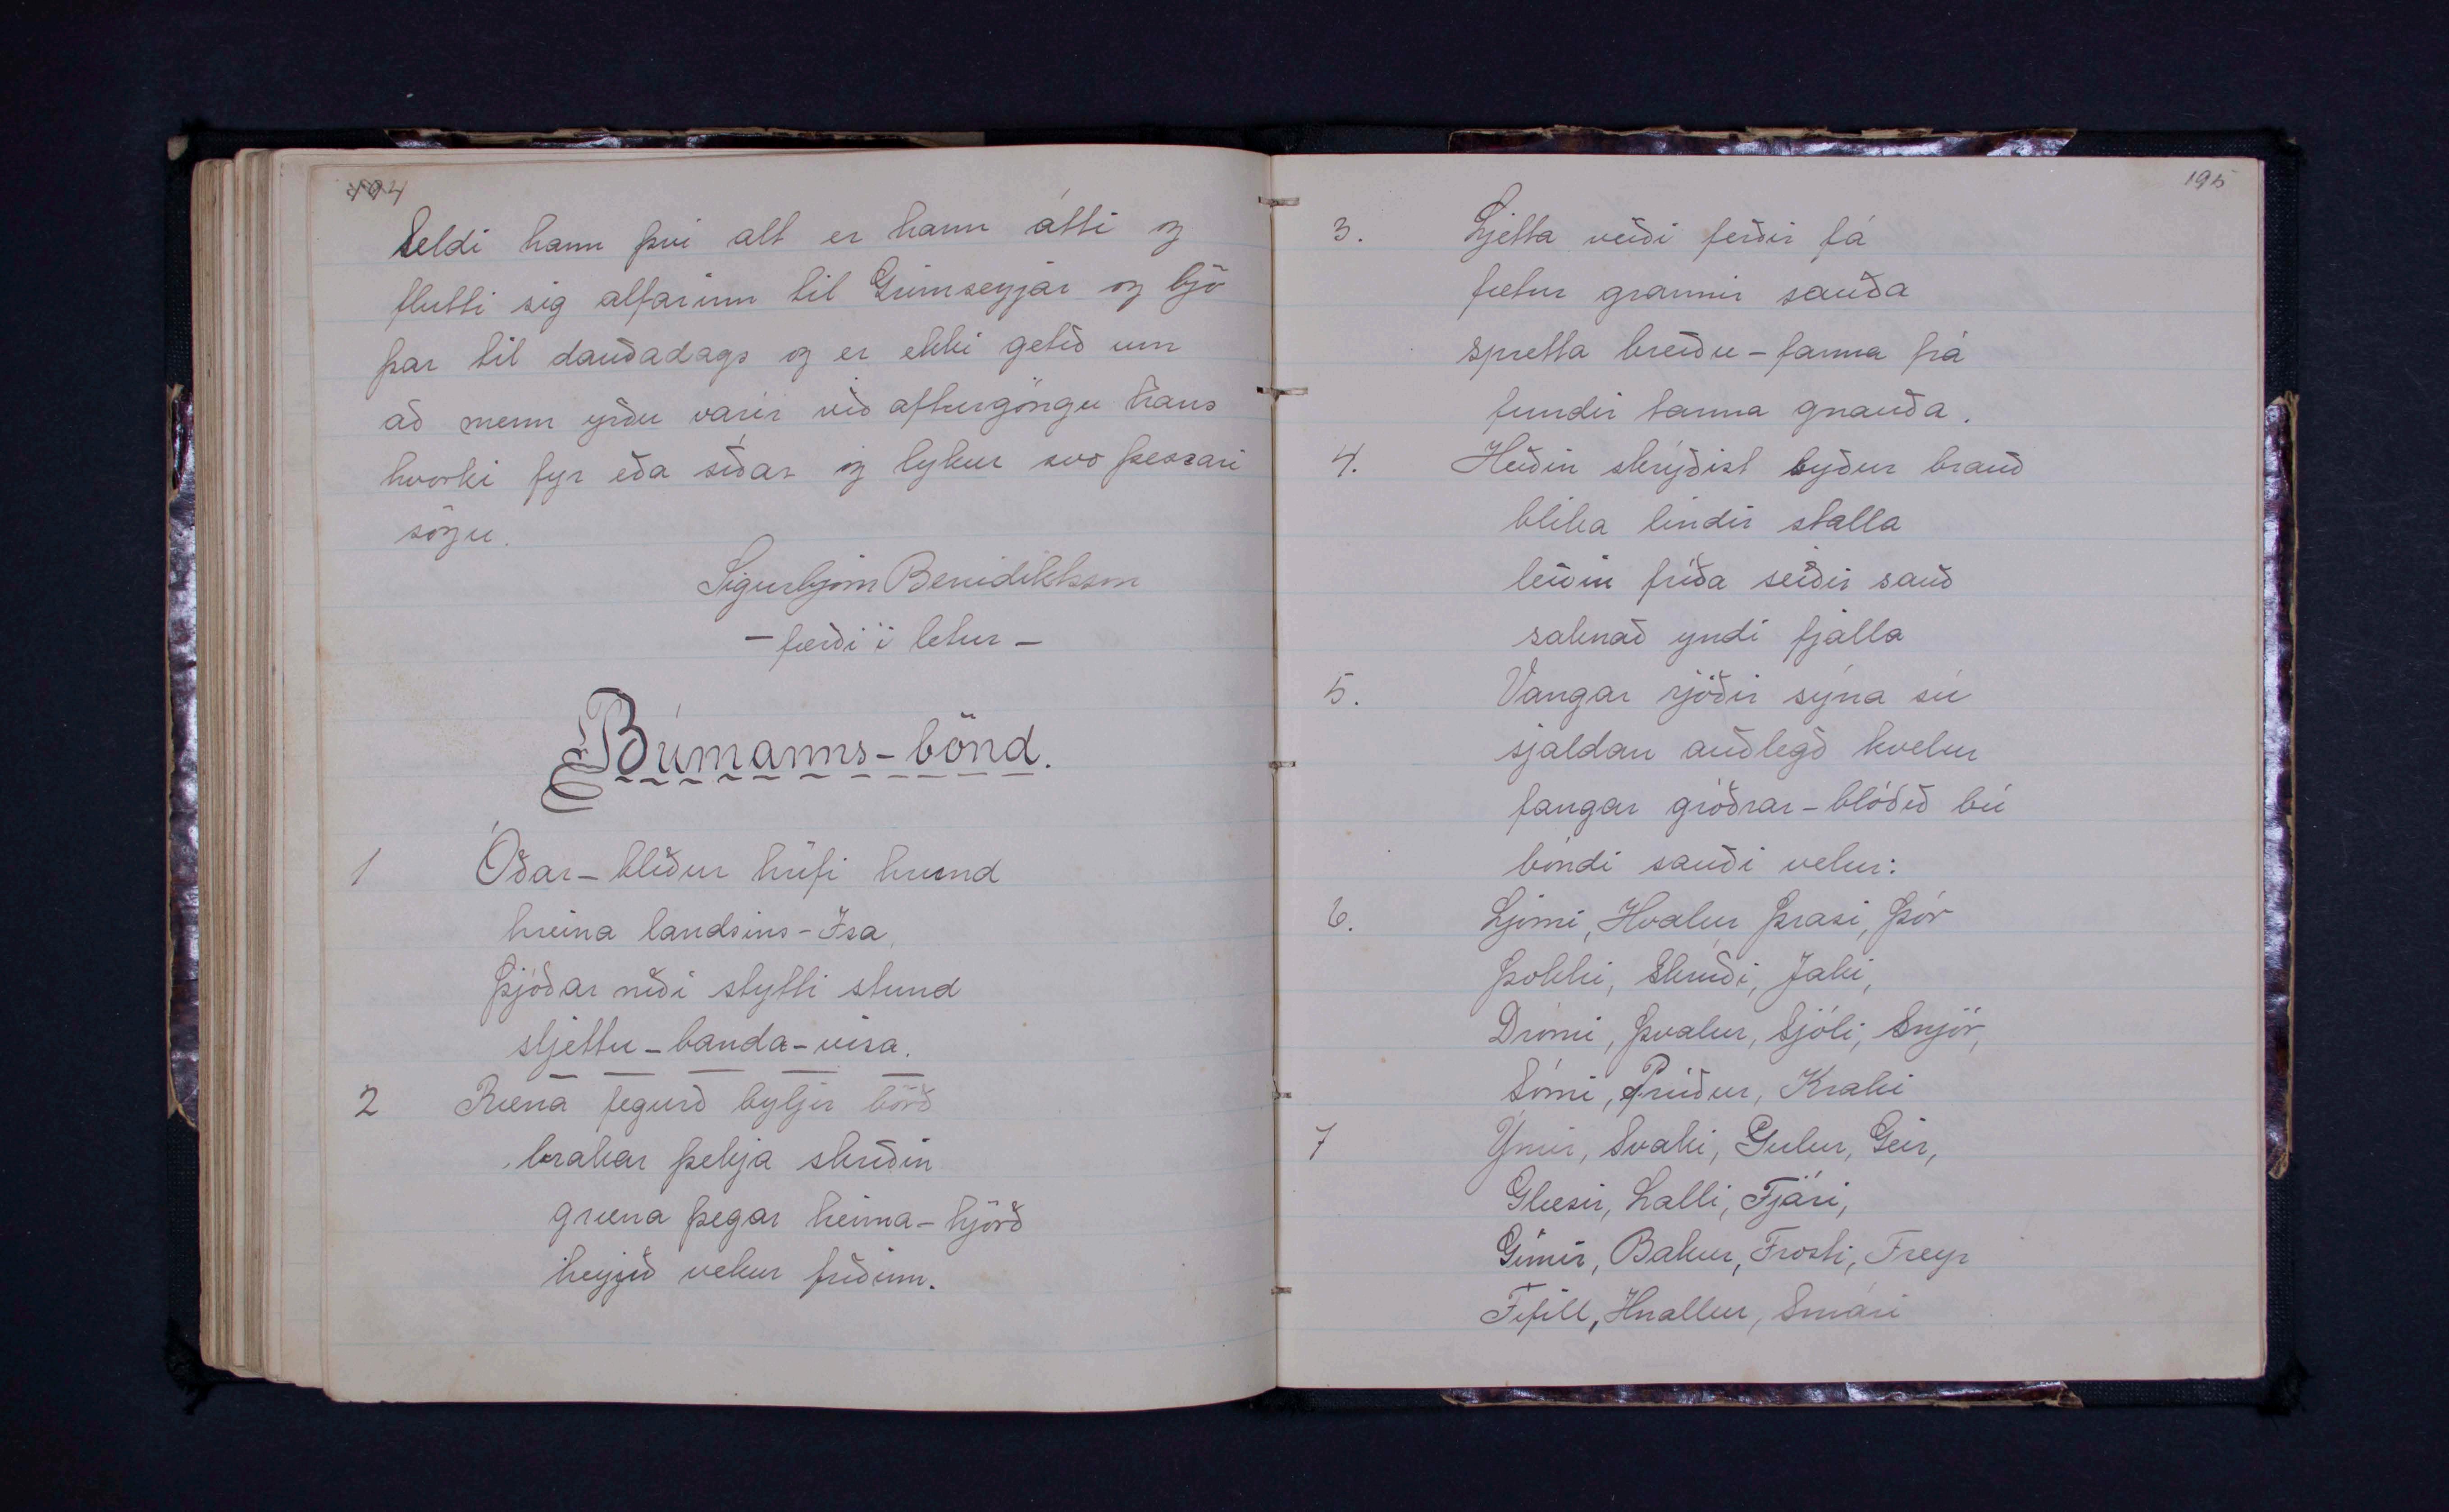 194
Seldi hann því alt er hann átti og
flutti sig alfarinn til Grímseyjar og bjó
þar til dauðadags og er ekki getið um
að menn yrðu varir við afturgöngu hans
hvorki fyr eða síðar og lykur svo þessari
sögu.
Sigurbjörn Benidiktsson
- færði í letur -
Búmanns-bönd.
1 Óðar-blíður hrífi hrund
hreina landsins-Ísa
Þjóðar niði stytti stund
sljettu-banda-vísa.
2 Ræna fegurð byljir börð
brakar þekja skriðin
græna þegar heima-hjörð
heyjið vekur friðinn.
195
3. Ljetta veiði ferðir fá
fætur grannir sauða
spretta breiðu-fanna frá
fundir tanna gnauða.
4. Heiðin skrýðist byður brauð
blika lindir stalla
leiðin fríða seiðir sauð
saknað yndi fjalla
5. Vangar rjóðir sýna sú
sjaldan auðlegð kvelur
fangar gróðrar-blóðið bú
bóndi sauði velur:
6. Ljómi, Hvalur Þrasi, Þór
Þokki, Skrúði, Jaki,
Drómi, Þvalur, Sjóli, Snjór,
Sómi, Prúður, Kraki
7 Ýmir, Svaki, Gulur, Geir,
Glæsir, Lalli, Fjári,
Gímir, Bakur, Frosti, Freyr
Fífill, Hnallur, Smári